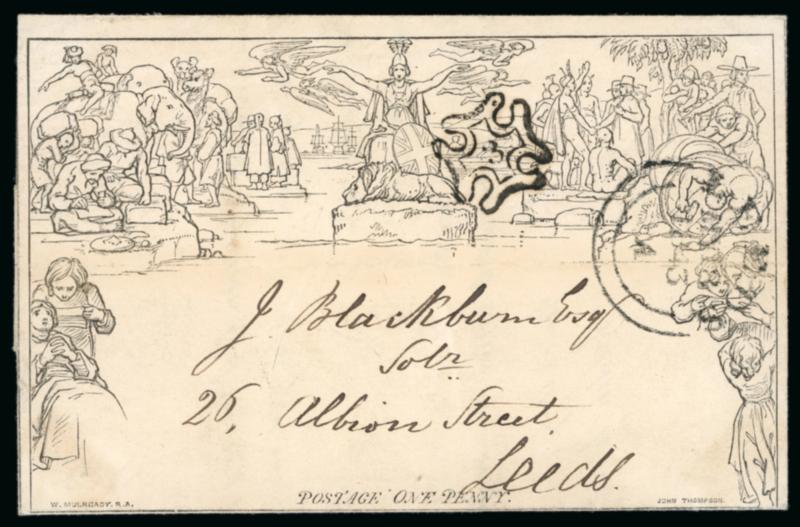 J. Blackburn Esq
Solr
26, Albion Street
Leeds.
POSTAGE ONE PENNY.
W. MULREADY, R.A.
JOHN THOMPSON.